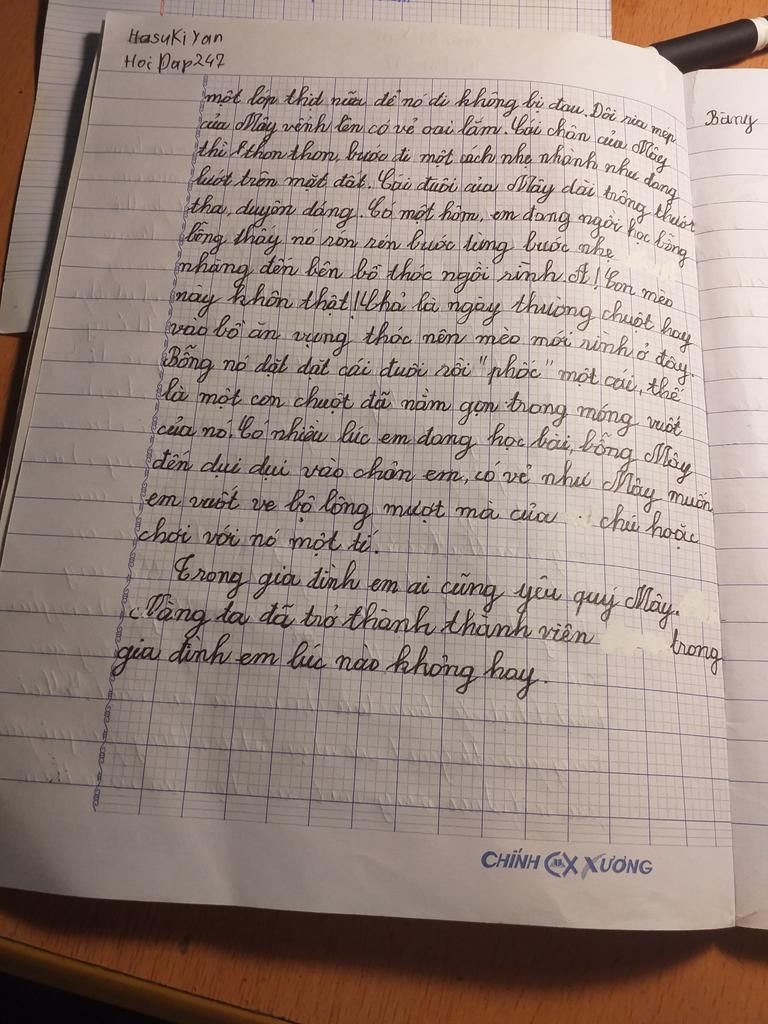 HasuKiYan
HoiDap247
một lớp thịt nữa để nó đi không bị đau. Đôi ria mép
của Mây vểnh lên có vẻ oai lắm. Cái chân của Mây
thì thon thon, bước đi một cách nhẹ nhành như đang
lướt trên mặt đất. Cái đuôi của Mây dài trông thướt
tha, duyên dáng. Có một hôm, em đang ngồi học bỗng
bỗng thấy nó rón rén bước từng bước nhẹ
nhàng đến bên bồ thóc ngồi rình. A! Con mèo
này khôn thật! Chả là ngày thường chuột hay
vào bồ ăn vụng thóc nên mèo mới rình ở đây.
Bỗng nó dặt dặt cái đuôi rồi "phốc" một cái, thế
là một con chuột đã nằm gọn trong móng vuốt
của nó. Có nhiều lúc em đang học bài, bỗng Mây
đến dụi dụi vào chân em, có vẻ như Mây muốn
em vuốt ve bộ lông mượt mà của chú hoặc
chơi với nó một tí.
Trong gia đình em ai cũng yêu quý Mây.
Nàng ta đã trở thành thành viên trong
gia đình em lúc nào không hay.
CHÍNH CX XƯƠNG
Bằng